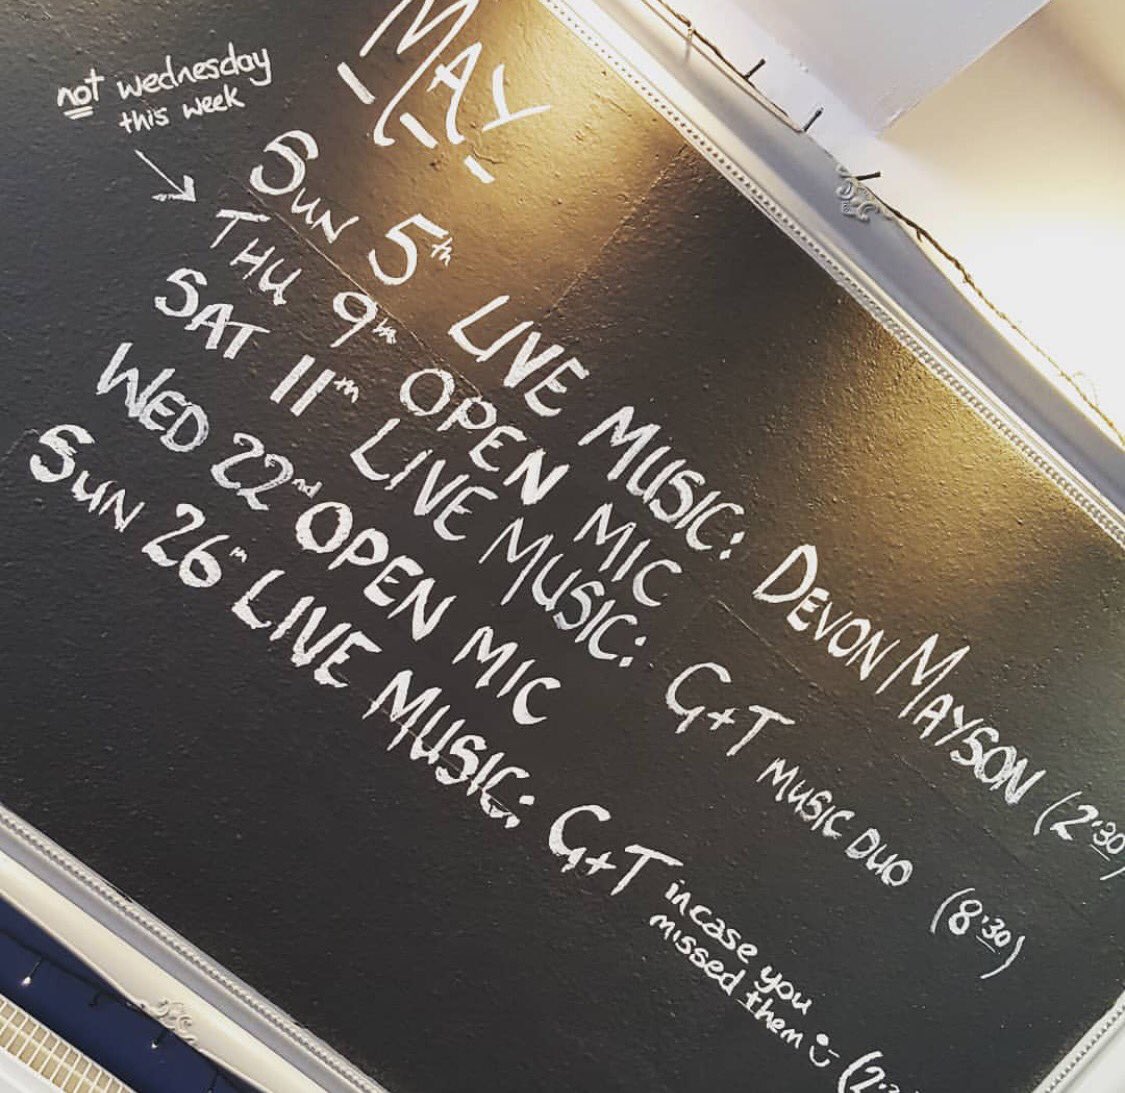 MAY
not wednesday
this week
SUN 5th LIVE MUSIC: DEVON MAYSON (2:30)
THU 9th OPEN MIC
SAT 11th LIVE MUSIC: G+T MUSIC DUO (8:30)
WED 22nd OPEN MIC
SUN 26th LIVE MUSIC: G+T incase you
missed them